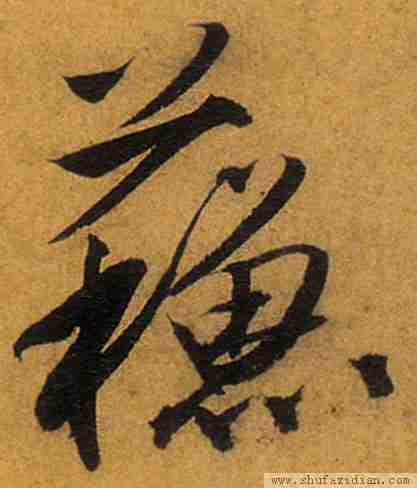 蘓
www.shufazidian.com